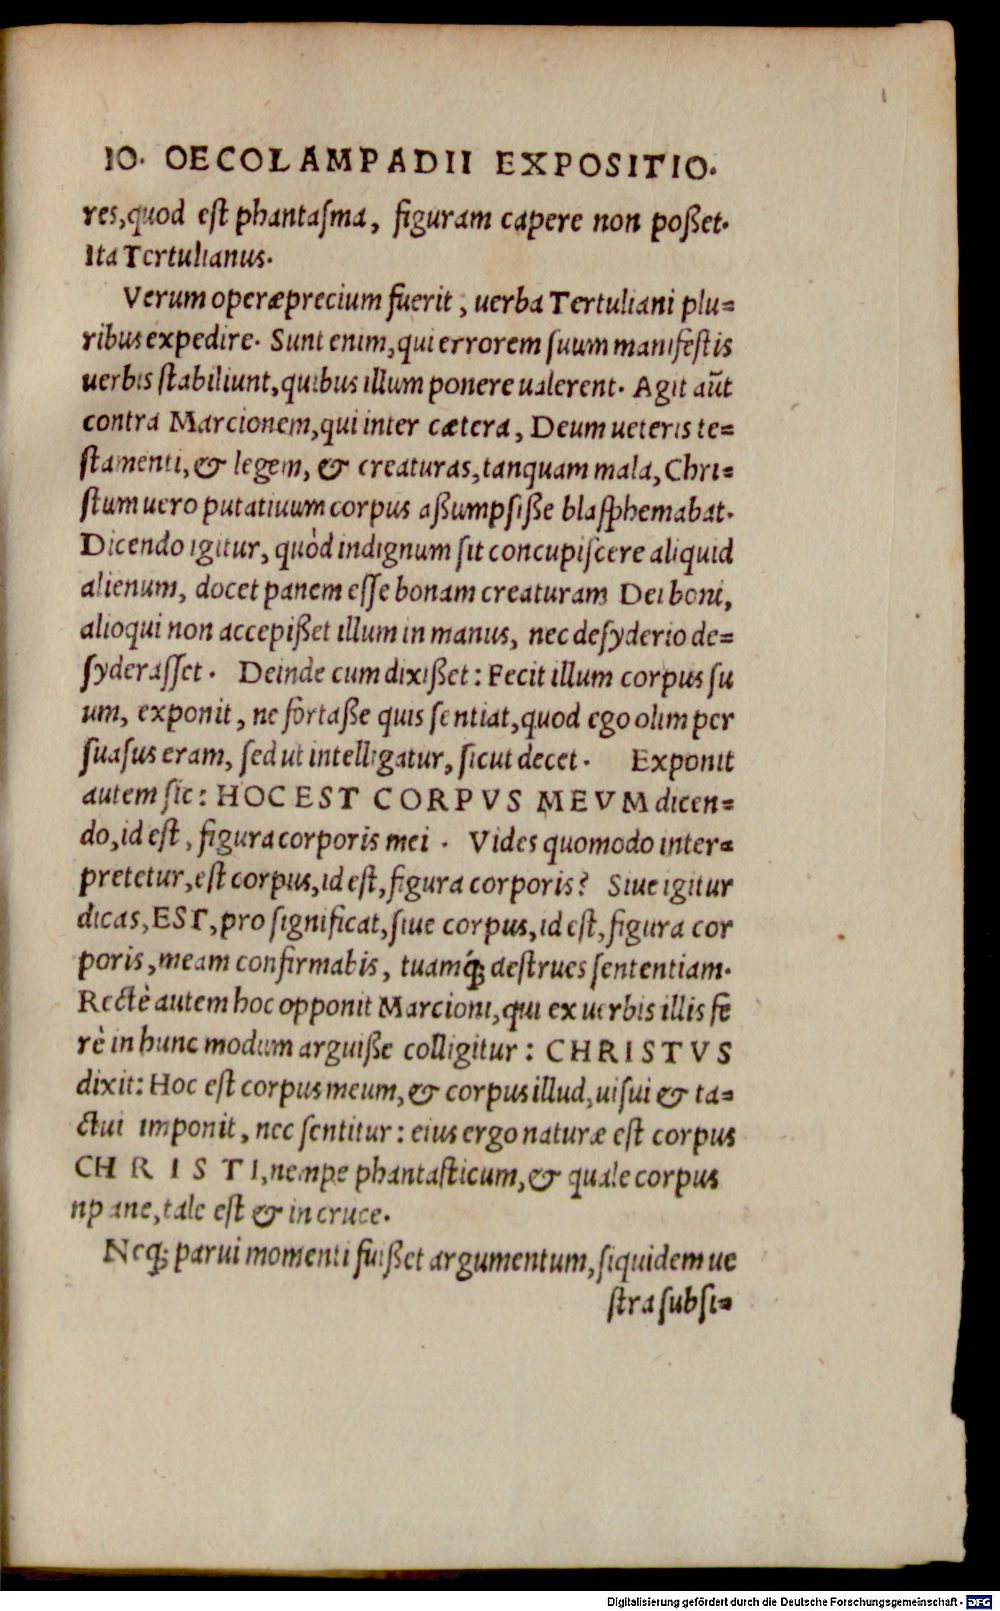 IO. OECOLAMPADII EXPOSITIO.
res, quod est phantasma, figuram capere non poßet.
Ita Tertulianus.
Verum operæprecium fuerit, uerba Tertuliani plu=
ribus expedire. Sunt enim, qui errorem suum manifestis
uerbis stabiliunt, quibus illum ponere ualerent. Agit aūt
contra Marcionem, qui inter cætera, Deum ueteris te=
stamenti, & legem, & creaturas, tanquam mala, Chri=
stum uero putatiuum corpus aßumpsiße blasphemabat.
Dicendo igitur, quòd indignum sit concupiscere aliquid
alienum, docet panem esse bonam creaturam Dei boni,
alioqui non accepißet illum in manus, nec desyderio de=
syderasset. Deinde cum dixißet: Fecit illum corpus su
um, exponit, ne fortaße quis sentiat, quod ego olim per
suasus eram, sed ut intelligatur, sicut decet. Exponit
autem sic: HOC EST CORPVS MEVM dicen=
do, id est, figura corporis mei. Vides quomodo inter=
pretetur, est corpus, id est, figura corporis? Siue igitur
dicas, EST, pro significat, siue corpus, id est, figura cor
poris, meam confirmabis, tuamq́; destrues sententiam.
Rectè autem hoc opponit Marcioni, qui ex uerbis illis fe
rè in hunc modum arguiße colligitur: CHRISTVS
dixit: Hoc est corpus meum, & corpus illud, uisui & ta=
ctui imponit, nec sentitur: eius ergo naturæ est corpus
CHRISTI, nempe phantasticum, & quale corpus
np ane, tale est & in cruce.
Neq; parui momenti fuißet argumentum, siquidem ue
stra subsi=
Digitalisierung gefördert durch die Deutsche Forschungsgemeinschaft - DFG